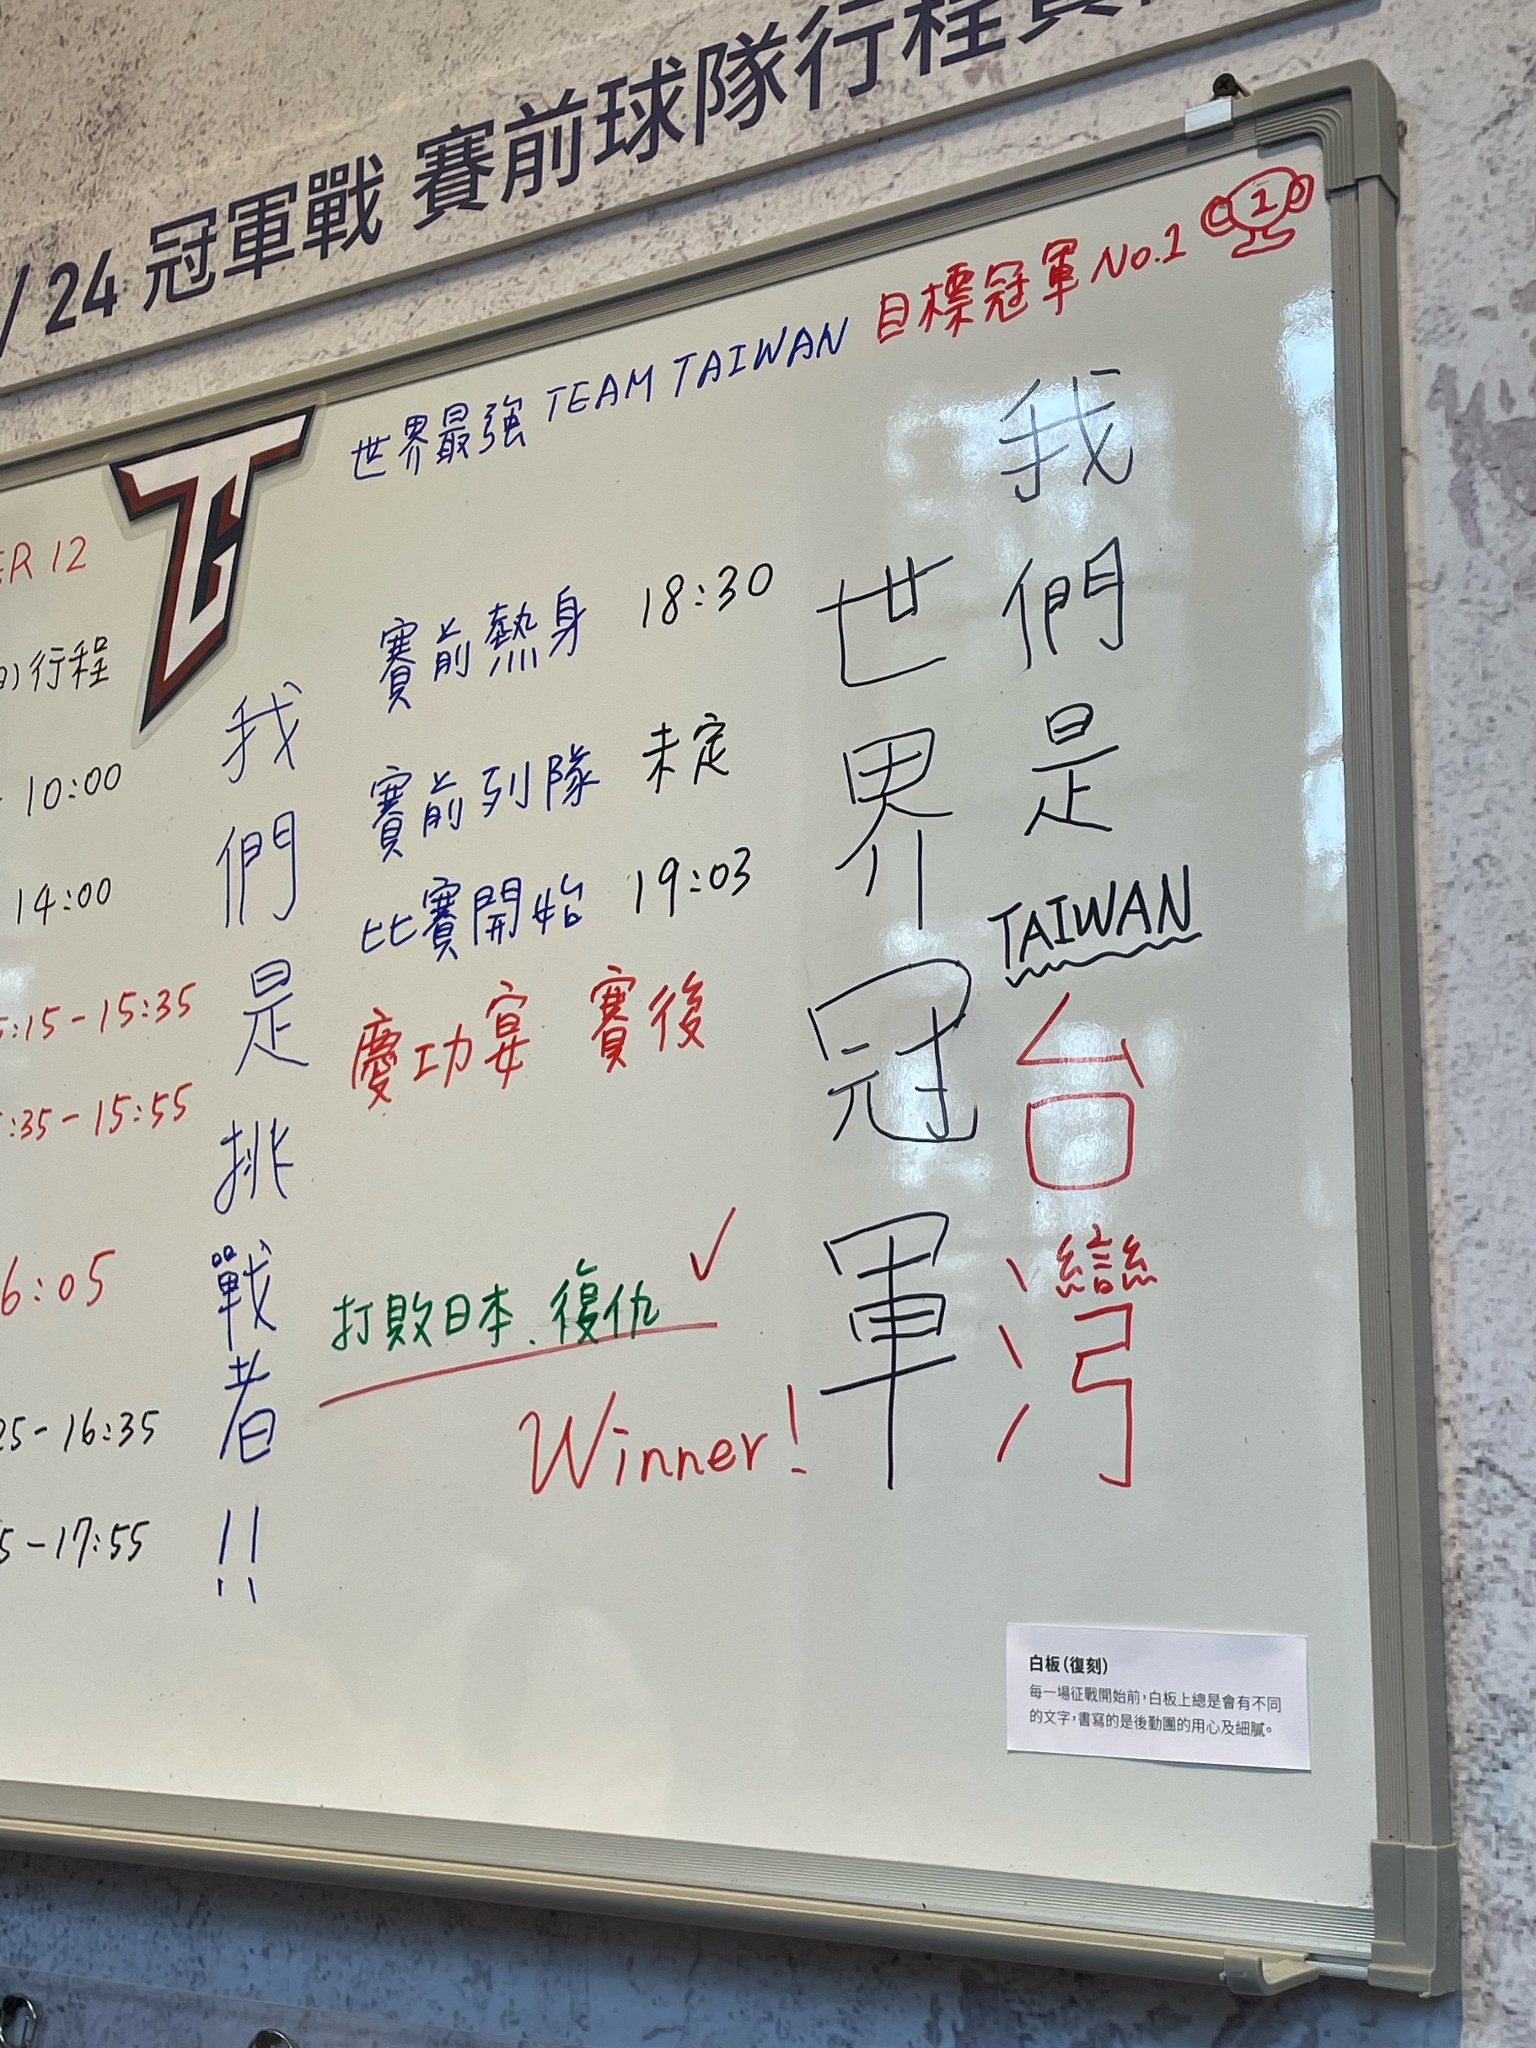 /24 冠軍戰 賽前球隊行程
世界最強 TEAM TAIWAN 目標冠軍 No.1
1
ER 12
行程
10:00
14:00
:15-15:35
:35-15:55
6:05
25-16:35
5-17:55
我們是挑戰者!!
賽前熱身 18:30
賽前列隊 未定
比賽開始 19:03
慶功宴 賽後
打敗日本、復仇 ✓
Winner!
我們是 TAIWAN 台灣
世界冠軍
白板(復刻)
每一場征戰開始前,白板上總是會有不同
的文字,書寫的是後勤團的用心及細膩。